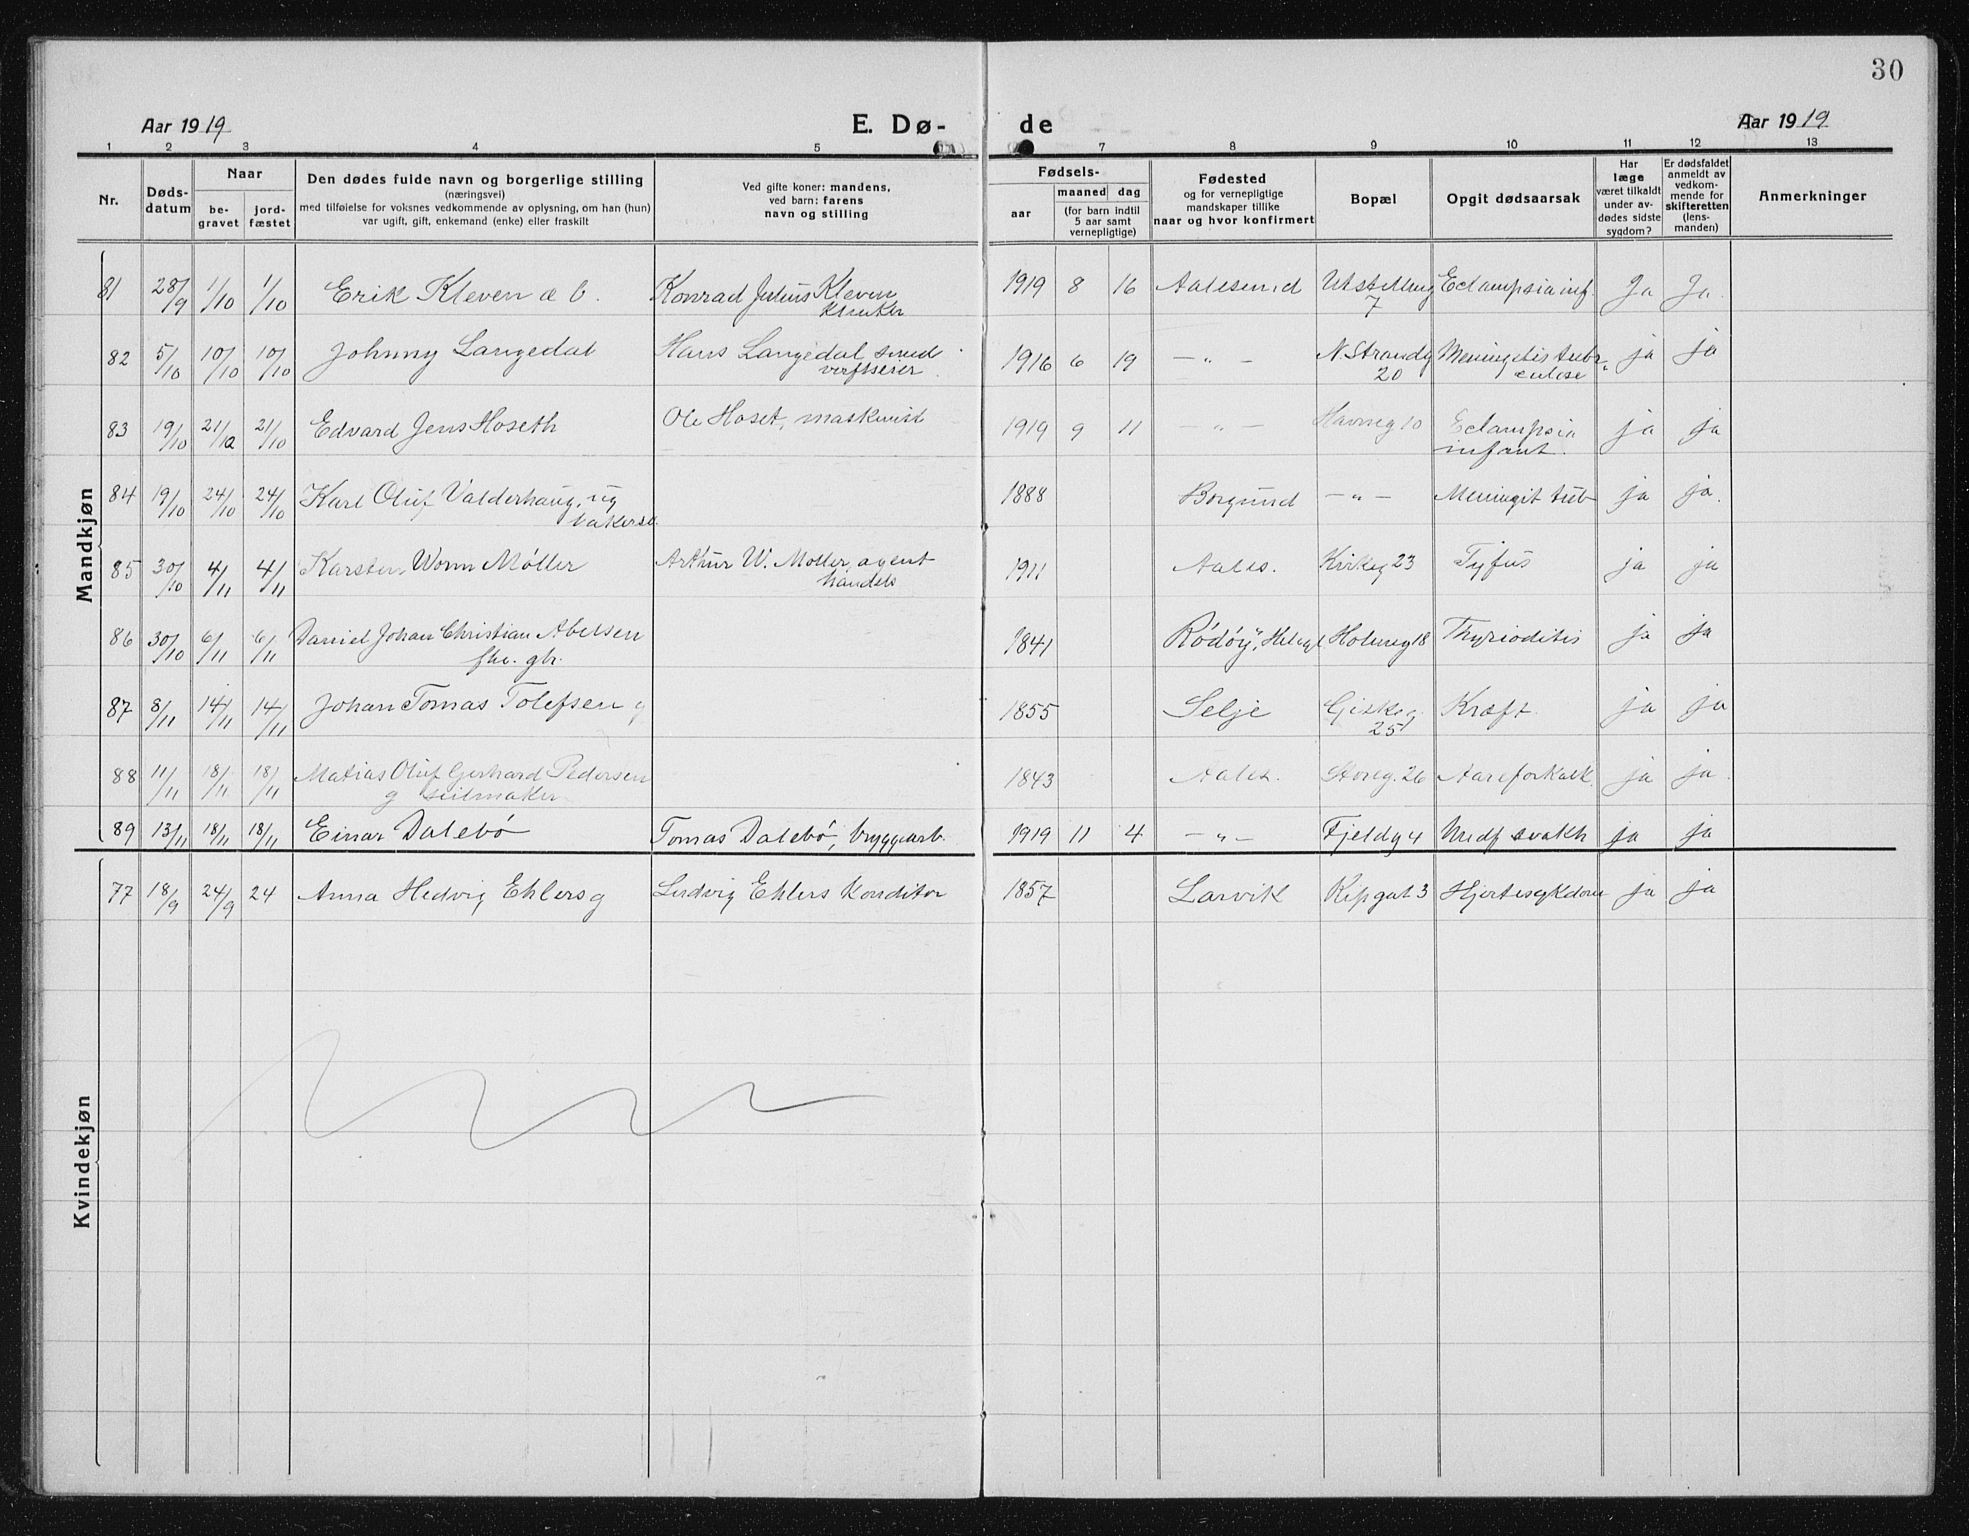 30
Aar 1919 E. Dø- de Aar 1919
1 2 3 4 5 7 8 9 10 11 12 13
Nr.
Døds-
datum
Naar
be-
gravet
jord-
fæstet
Den dødes fulde navn og borgerlige stilling
(næringsvei)
med tilføielse for voksnes vedkommende av oplysning, om han (hun)
var ugift, gift, enkemand (enke) eller fraskilt
Ved gifte koner: mandens,
ved barn: farens
navn og stilling
Fødsels-
aar
maaned
dag
(for barn indtil
5 aar samt
vernepligtige)
Fødested
og for vernepligtige
mandskaper tillike
naar og hvor konfirmert
Bopæl
Opgit dødsaarsak
Har
læge
været tilkaldt
under av-
dødes sidste
sygdom?
Er dødsfaldet
anmeldt av
vedkom-
mende for
skifteretten
(lens-
manden)
Anmerkninger
Mandkjøn
81 28/9 1/10 1/10 Erik Kleven æ b. Konrad Julius Kleven 1919 8 16 Aalesund Utstilling Eclampsia inf. Ja Ja.
7
82 5/10 10/10 10/10 Johnny Langedal Hans Langedal smed 1916 6 19 -"- N. Strandg Meningitis tuber ja ja
verftseier 20 culose
83 19/10 21/10 21/10 Edvard Jens Hoseth Ole Hoset, maskinist 1919 9 11 -"- Havneg 10 Eclampsia ja ja
infant.
84 19/10 24/10 24/10 Karl Oluf Valderhaug, ug 1888 Borgund -"- Meningit tub ja ja.
bakersv.
85 30/10 4/11 4/11 Karsten Worm Møller Arthur W. Møller, agent 1911 Aales. Kirkeg 23 Tyfus ja ja
handels
86 30/10 6/11 6/11 Daniel Johan Christian Abelsen 1841 Rödöy, Helgel Holmeg 18 Thyrioditis ja ja
fhv. gbr.
87 8/11 14/11 14/11 Johan Tomas Tolefsen g 1855 Selje Giskeg Kræft. ja ja
25
88 11/11 18/11 18/11 Matias Oluf Gerhard Pedersen 1843 Aales. Storeg. 26 Aareforkalk. ja ja.
g seilmaker
89 13/11 18/11 18/11 Einar Dalebö Tomas Dalebö, bryggearb. 1919 11 4 -"- Fjeldg 4 Medf svakh ja ja
Kvindekjøn
77 18/9 24/9 24 Anna Hedvig Ehlers g Ludvig Ehlers Konditor 1857 Larvik Kipgat 3 Hjertesykdom ja ja